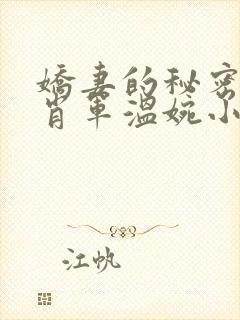 娇妻的秘密
肖军温婉小
江帆